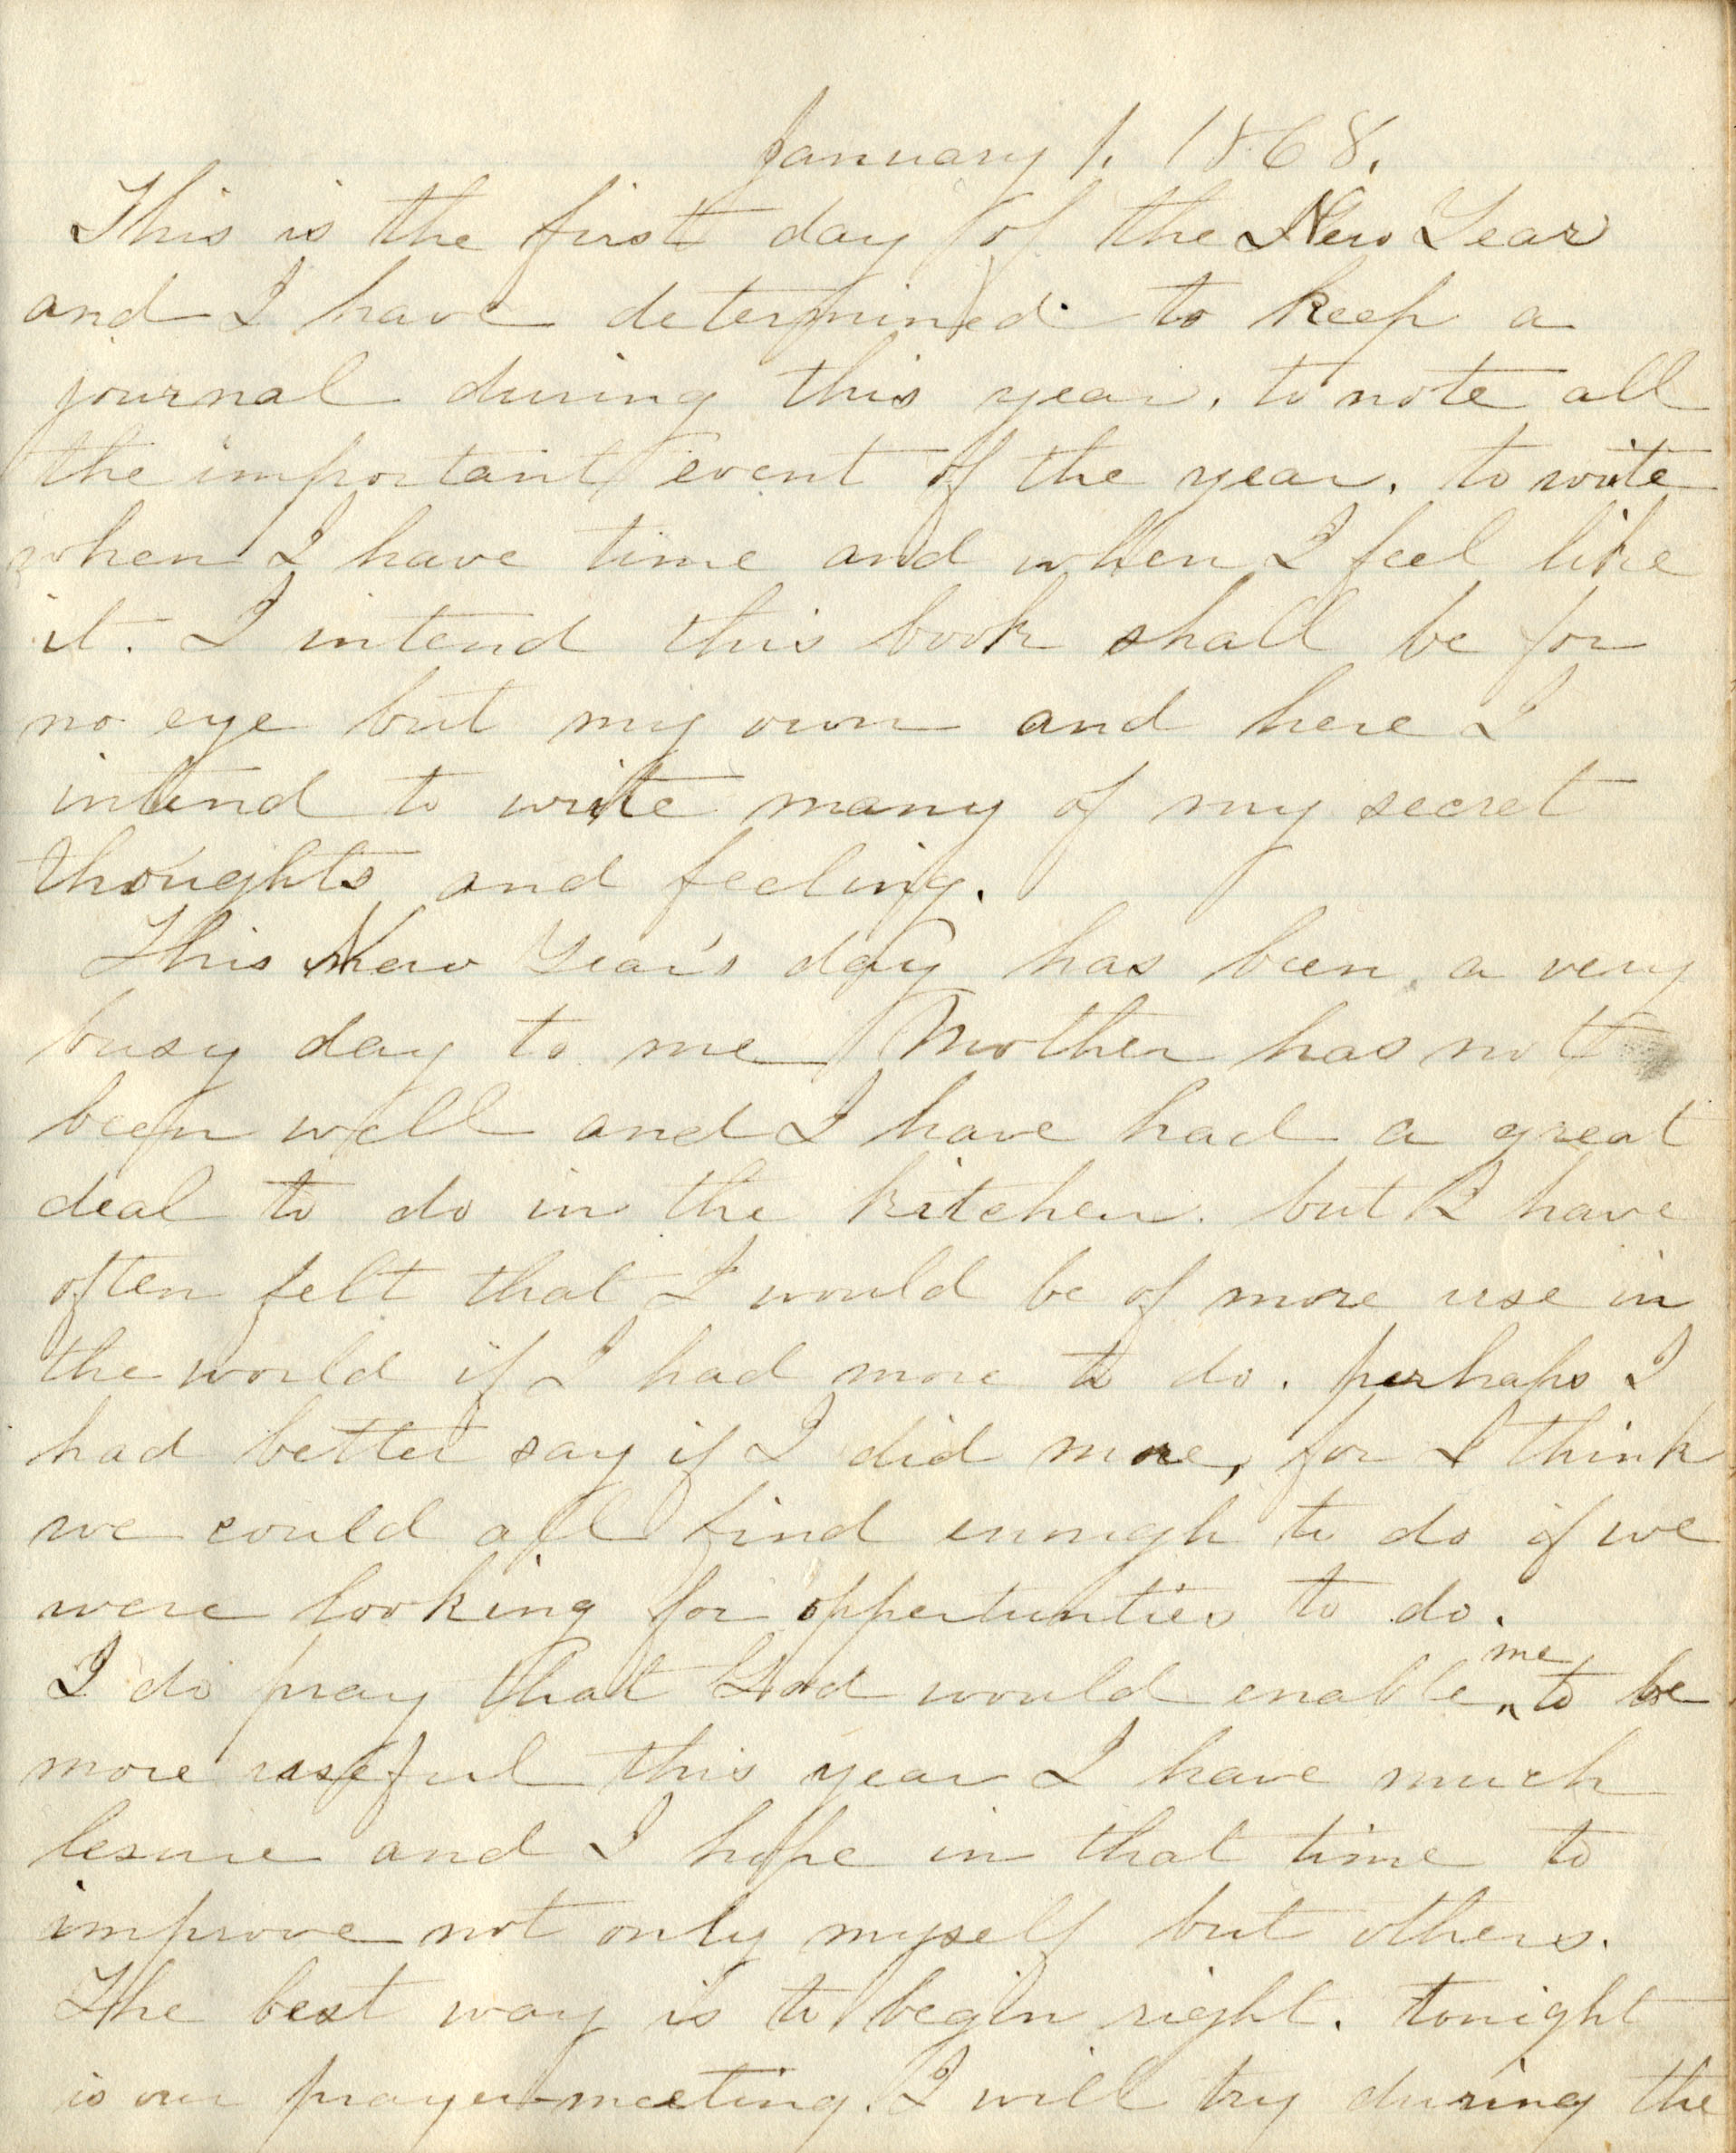 January 1. 1868.
This is the first day of the New Year
and I have determined to keep a
journal during this year, to note all
the important event of the year, to write
when I have time and when I feel like
it. I intend this book shall be for
no eye but my own and here I
intend to write many of my secret
thoughts and feeling.
This New Year's day has been a very
busy day to me Mother has not
been well and I have had a great
deal to do in the kitchen. but I have
often felt that I would be of more use in
the world if I had more to do. perhaps I
had better say if I did more, for I think
we could all find enough to do if we
were looking for oppertunties to do.
I do pray that God would enable me to be
more useful this year I have much
lesure and I hope in that time to
improve not only myself but others.
The best way is to begin right. tonight
is our prayer-meeting. I will try during the